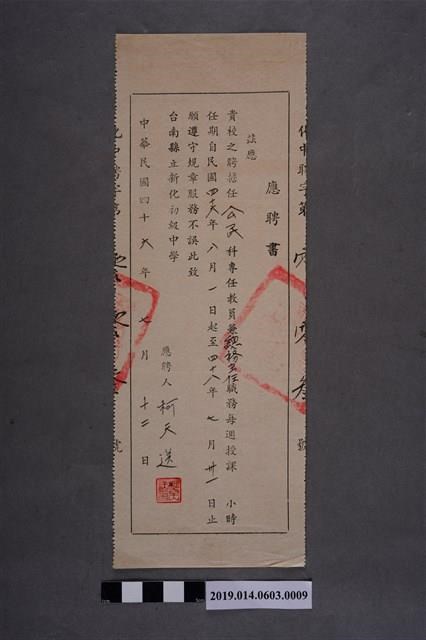 應聘書
茲應
貴校之聘擔任公民科專任教員兼總務主任職務每週授課 小時
任期自民國四十六年八月一日起至四十八年七月卅一日止
願遵守規章服務不誤此致
台南縣立新化初級中學
應聘人 柯天送
中華民國四十六年七月十二日
號
2019.014.0603.0009